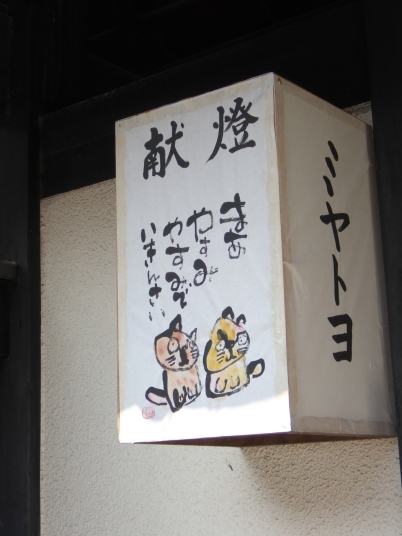 献燈
まあ
やすみ
やすみで
いきんさい
ミヤトヨ